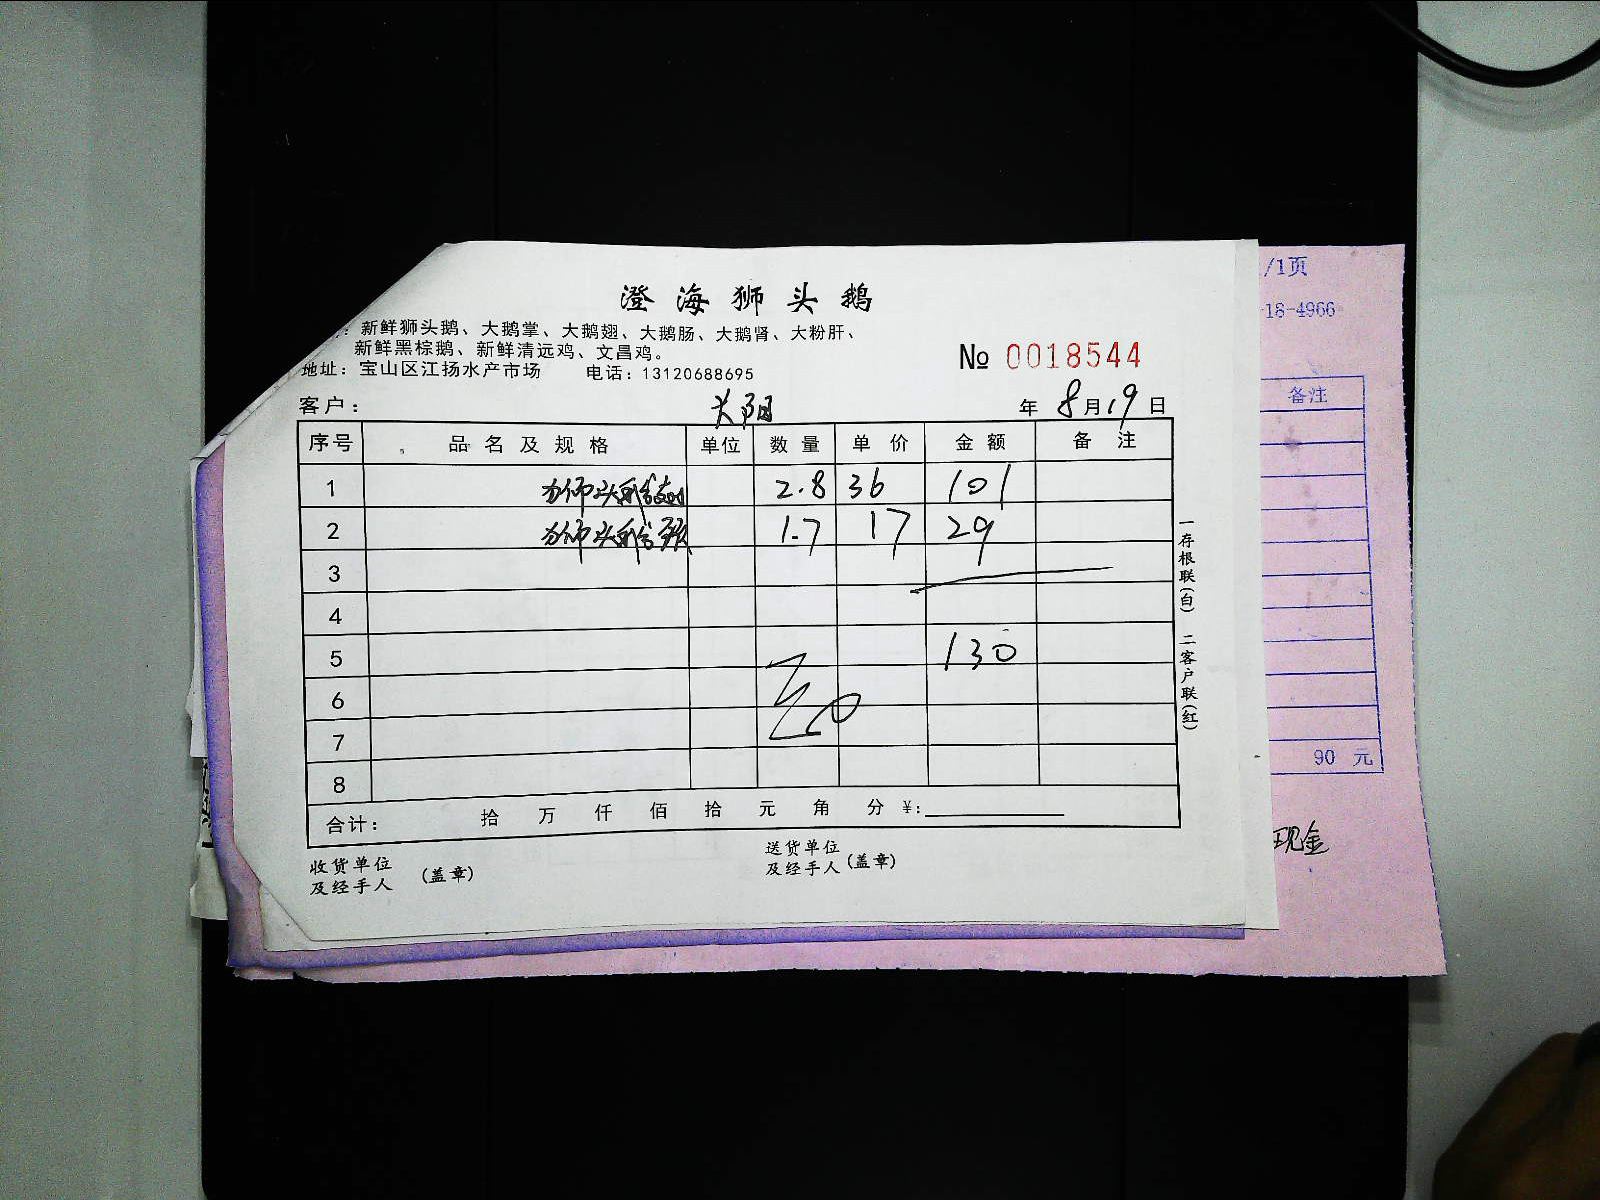 澄海狮头鹅
：新鲜狮头鹅、大鹅掌、大鹅翅、大鹅肠、大鹅肾、大粉肝、
新鲜黑棕鹅、新鲜清远鸡、文昌鸡。
地址：宝山区江扬水产市场 电话：13120688695
№ 0018544
客户： 年 8月19日
序号 品名及规格 单位 数量 单价 金额 备注
1 2.8 36 101
2 1.7 17 29
3
4
5 130
6
7
8
合计： 拾 万 仟 佰 拾 元 角 分 ¥:
收货单位
及经手人 (盖章)
送货单位
及经手人 (盖章)
一存根联(白) 二客户联(红)
/1页
18-4966
备注
90 元
现金